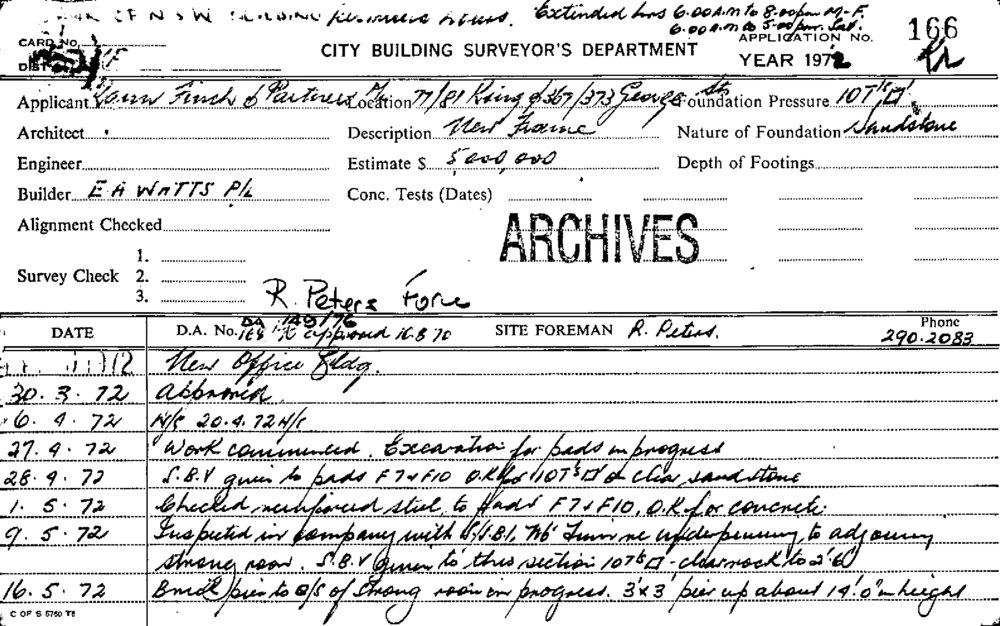 OF N.S.W. BUILDING Business hours. Extended hrs 6.00 A.M to 8.00 pm M-F.
6.00 A.M to 5-00 pm. Sat.
CARD No.
APPLICATION No. 166
CITY BUILDING SURVEYOR'S DEPARTMENT
YEAR 1972
Applicant Finch & Partners P/L Location 77/81 King & 367/373 George St Foundation Pressure 10T's□'
Architect Description New Frame Nature of Foundation Sandstone
Engineer Estimate $ 5 000,000 Depth of Footings
Builder E A WATTS P/L Conc. Tests (Dates)
Alignment Checked
ARCHIVES
Survey Check 1.
2.
3.
R. Peters Fore
DATE D.A. No. DA 149/76
approved 16.8.70 SITE FOREMAN R. Peters. Phone
290.2083
New Office Bldg.
30. 3. 72 Approved
6. 4. 72 N/C 20.4.72 N/C
27. 4. 72 Work commenced. Excavation for pads in progress
28. 4. 72 S.B.V given to pads F7 & F10 O.K for 10T's□' on clean sandstone
1. 5. 72 Checked reinforced steel to Pads F7 & F10, O.K for concrete
9. 5. 72 Inspected in company with S/S.B.I. re underpinning to adjoining
strong room. S.B.V given to this section 10T's□' clean rock to 2'6"
16. 5. 72 Brick pier to of strong room in progress. 3'x3' pier up about 14'.0" in height
C OF S 5750 T8